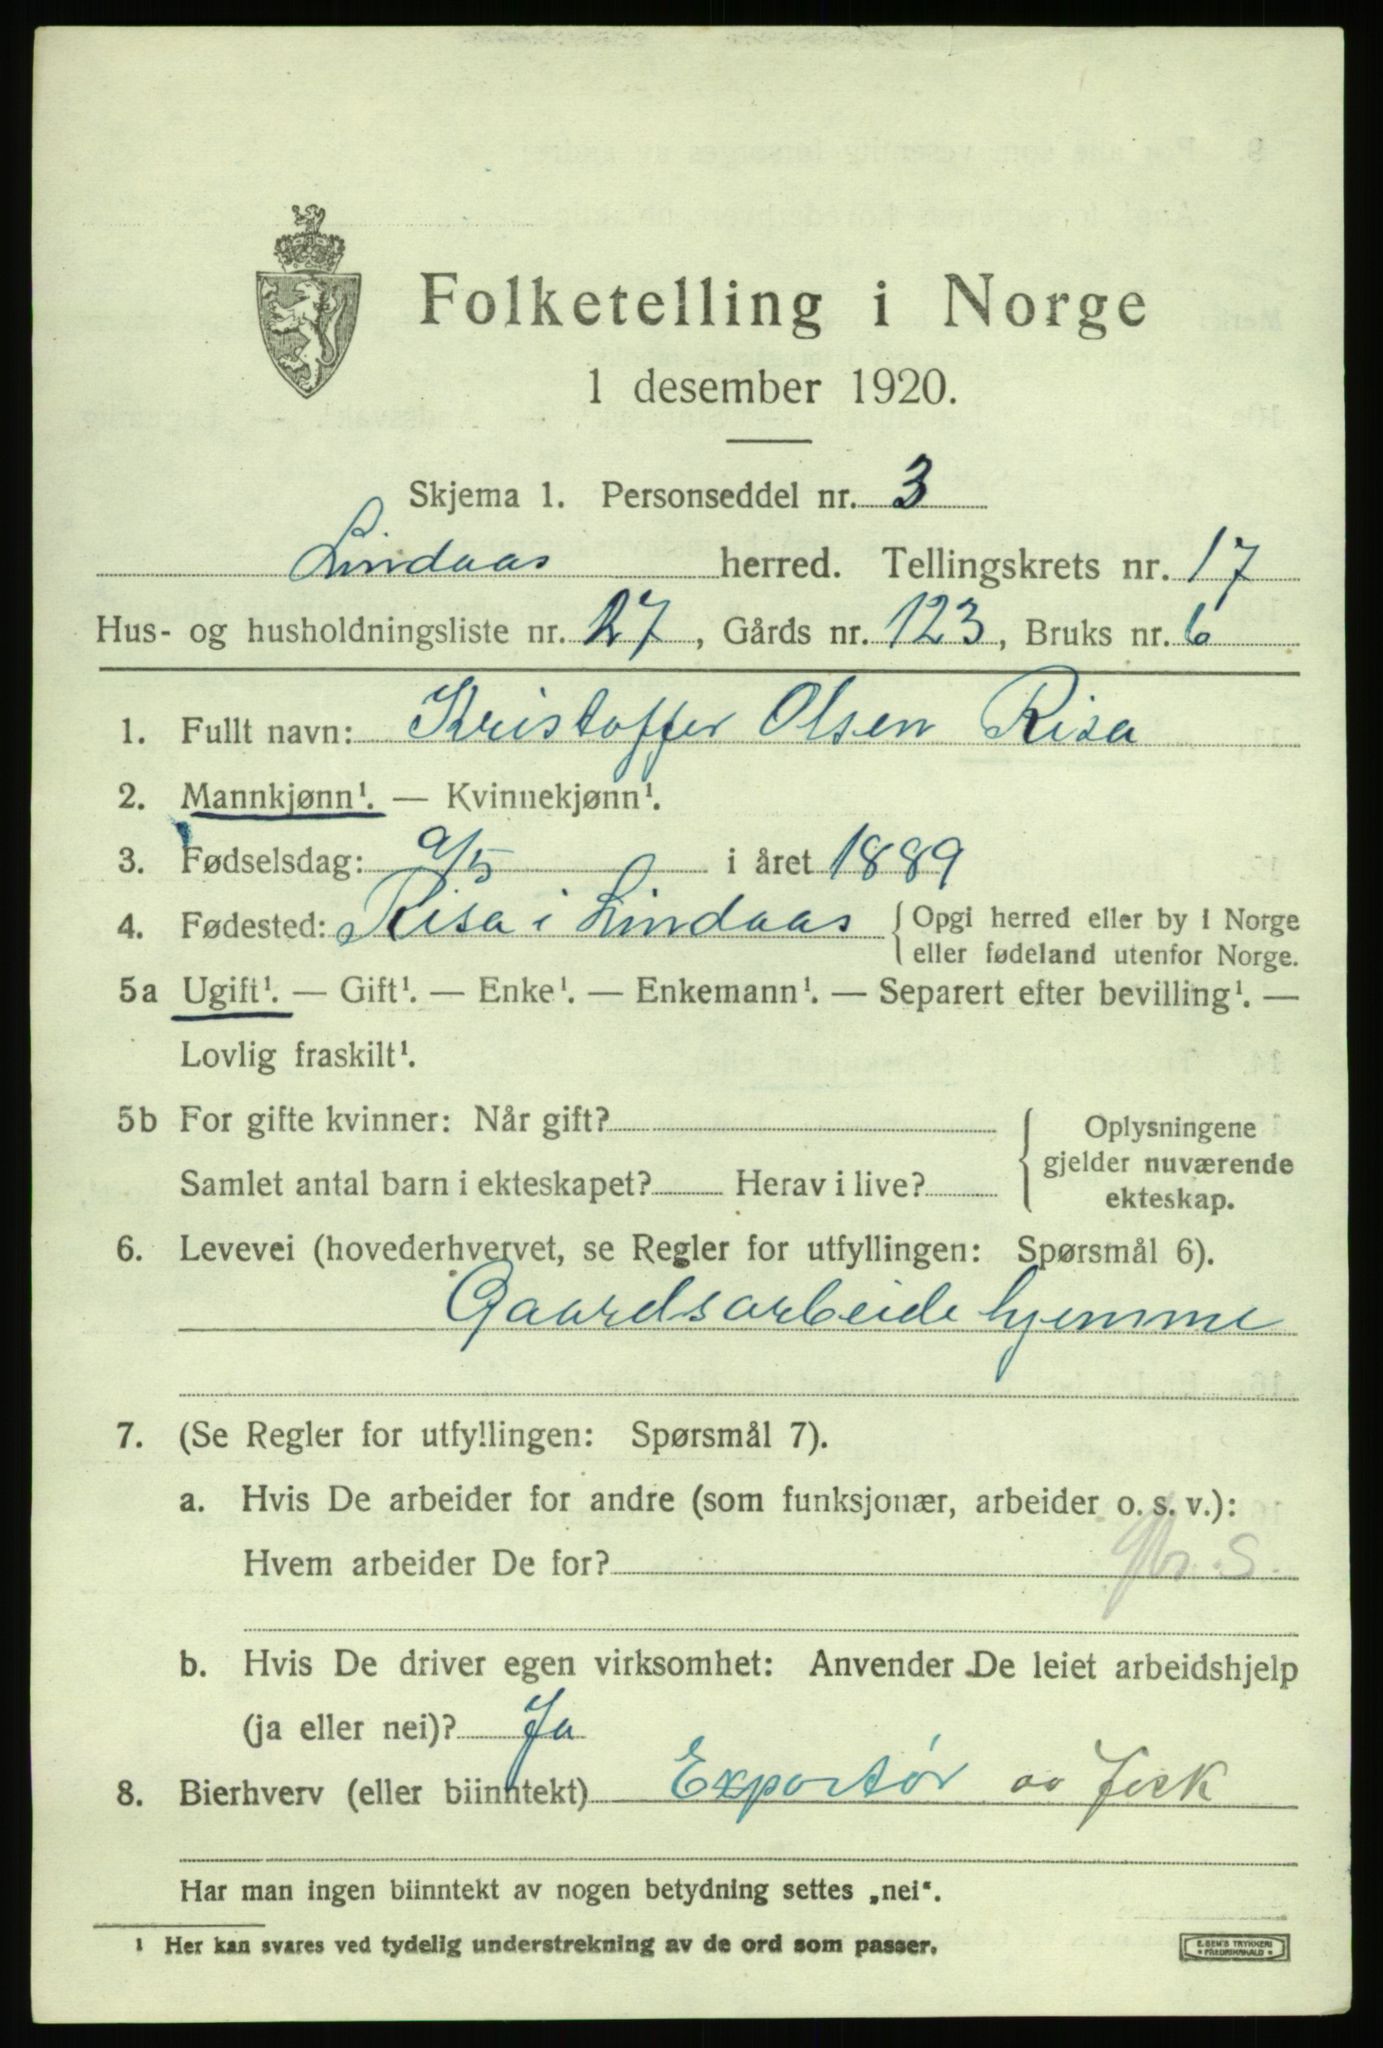 Folketelling i Norge
1 desember 1920.
Skjema 1. Personseddel nr. 3
Lindaas herred. Tellingskrets nr. 17
Hus- og husholdningsliste nr. 27, Gårds nr. 123, Bruks nr. 6
1. Fullt navn: Kristoffer Olsen Risa
2. Mannkjønn¹. — Kvinnekjønn¹.
3. Fødselsdag: 9/5 i året 1889
4. Fødested: Risa i Lindaas { Opgi herred eller by i Norge
eller fødeland utenfor Norge.
5a Ugift¹. — Gift¹. — Enke¹. — Enkemann¹. — Separert efter bevilling¹. —
Lovlig fraskilt¹.
5b For gifte kvinner: Når gift?
Samlet antal barn i ekteskapet? Herav i live?
{ Oplysningene
gjelder nuværende
ekteskap.
6. Levevei (hovederhvervet, se Regler for utfyllingen: Spørsmål 6).
Gaardsarbeide hjemme
7. (Se Regler for utfyllingen: Spørsmål 7).
a. Hvis De arbeider for andre (som funksjonær, arbeider o. s. v.):
Hvem arbeider De for? S.
b. Hvis De driver egen virksomhet: Anvender De leiet arbeidshjelp
(ja eller nei)? Ja
8. Bierhverv (eller biinntekt) Exportør av fisk
Har man ingen biinntekt av nogen betydning settes „nei“.
¹ Her kan svares ved tydelig understrekning av de ord som passer.
E. SEM'S TRYKKERI
* FREDRIKSHALD *